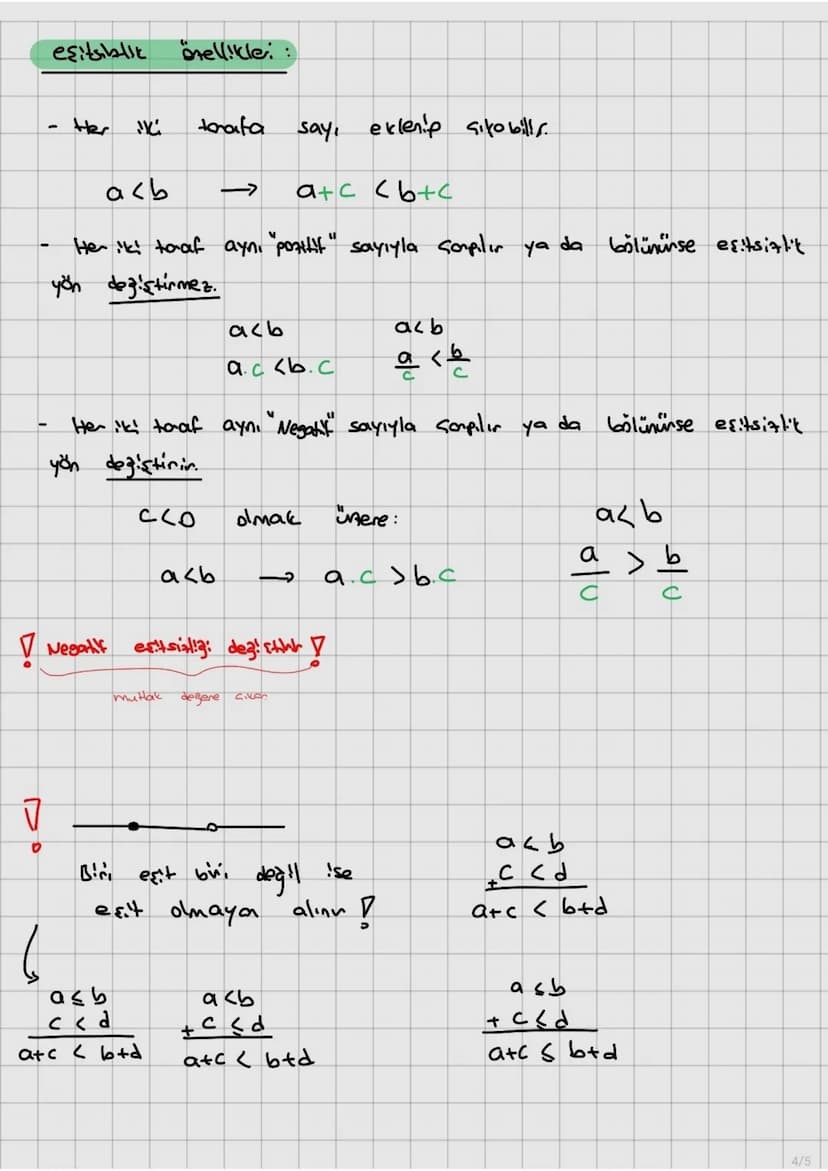 eşitsizlik özellikleri :
- Her iki tarafa sayı eklenip çıkabilir.
a<b → a+c < b+c
- Her iki taraf aynı "pozitif" sayıyla çarpılır ya da bölünürse eşitsizlik
yön değiştirmez.
a<b a<b
a.c <b.c a/c < b/c
- Her iki taraf aynı "Negatif" sayıyla çarpılır ya da bölünürse eşitsizlik
yön değiştirir.
c<0 olmak üzere: a<b
a<b → a.c >b.c a/c > b/c
! Negatif eşitsizliği değiştirir !
mutlak değere çıkar
!
Biri eşit biri değil ise
eşit olmayan alınır !
a<b
+c<d
a+c < b+d
a≤b
c<d
a+c < b+d
a<b
+c≤d
a+c < b+d
a≤b
+c≤d
a+c ≤ b+d
4/5